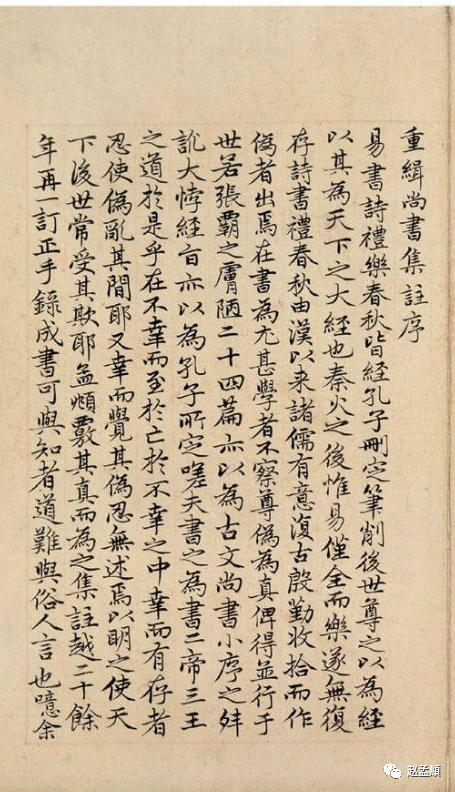 重緝尚書集註序
易書詩禮樂春秋皆經孔子刪定筆削後世尊之以為經
以其為天下之大經也秦火之後惟易僅全而樂遂無復
存詩書禮春秋由漢以来諸儒有意復古殷勤收拾而作
偽者出焉在書為尤甚學者不察尊偽為真俾得並行于
世若張霸之膚陋二十四篇亦以為古文尚書小序之舛
訛大悖經旨亦以為孔子所定嗟夫書之為書二帝三王
之道於是乎在不幸而至於亡於不幸之中幸而有存者
忍使偽亂其間耶又幸而覺其偽忍無述焉以明之使天
下後世常受其欺耶孟頫覈其真而為之集註越二十餘
年再一訂正手錄成書可與知者道難與俗人言也噫余
赵孟頫